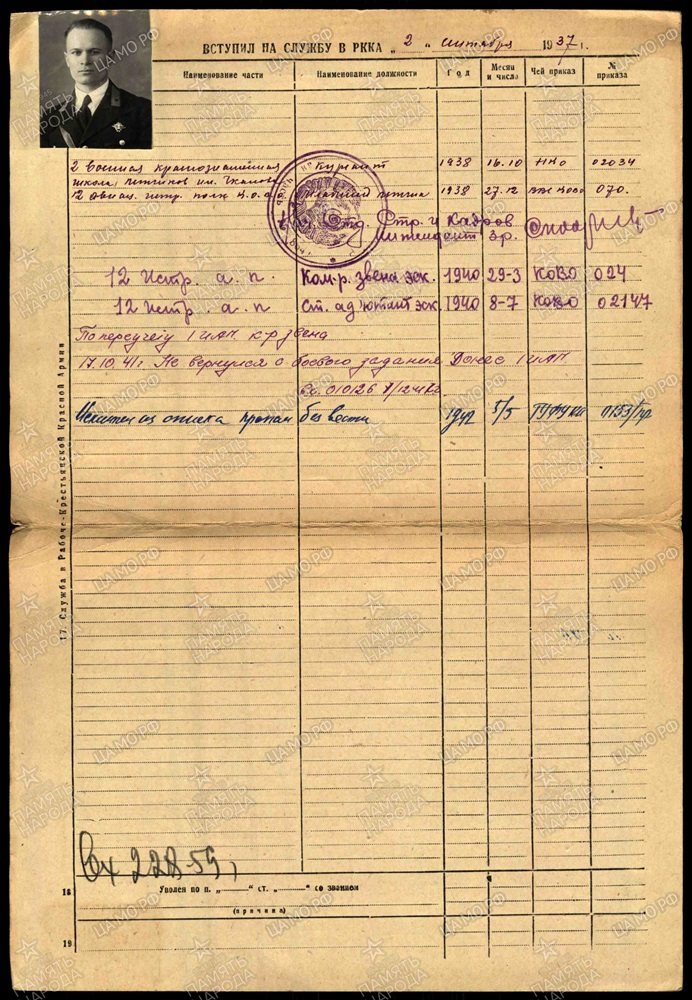 ВСТУПИЛ НА СЛУЖБУ В РККА „ 2 „ сентября 1937 г.
Наименование части Наименование должности Год Месяц и число Чей приказ № приказа
2 военная краснознаменная курсант 1938 16.10 НКО 02034
школа им. Чкалова
12 авиац. истр. полк 1938 27.12 070.
Стр. и Кадров
12 истр. а. п. Ком-р. звена эск. 1940 29-3 КОВО 024
12 истр. а. п. Ст. адъютант эск. 1940 8-7 КОВО 02147
По переучету 1 ИАП к-р звена
17.10.41г. Не вернулся с боевого задания Донес 1 ИАП
вх. 010126
Исключен из списка пропал без вести 1942 5/5 ГУФУКА 0153/пр
17. Служба в Рабоче-Крестьянской Красной Армии
Вх 22859
18 Уволен по п. „ “ ст. „ “ со званием
(причина)
19
ПАМЯТЬ НАРОДА
ЦАМО.РФ